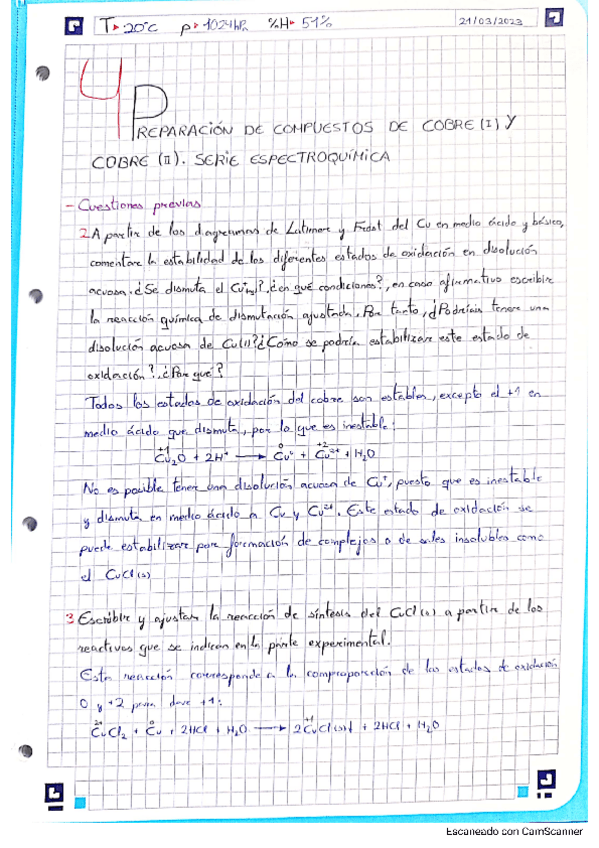 T▸ 20ºC p▸ 1024hPa %H▸ 51% 21/03/2023
4 PREPARACIÓN DE COMPUESTOS DE COBRE (I) Y
COBRE (II). SERIE ESPECTROQUÍMICA
- Cuestiones previas
2. A partir de los diagramas de Latimer y Frost del Cu en medio ácido y básico,
comentar la estabilidad de los diferentes estados de oxidación en disolución
acuosa. ¿Se dismuta el Cu⁺(aq)?, ¿en qué condiciones?, en caso afirmativo escribir
la reacción química de dismutación ajustada. Por tanto, ¿Podrías tener una
disolución acuosa de Cu(I)? ¿Cómo se podría estabilizar este estado de
oxidación?, ¿Por qué?
Todos los estados de oxidación del cobre son estables, excepto el +1 en
medio ácido que dismuta, por lo que es inestable:
+1 0 +2
Cu₂O + 2H⁺ → Cu⁰ + Cu²⁺ + H₂O
No es posible tener una disolución acuosa de Cu⁺, puesto que es inestable
y dismuta en medio ácido a Cu y Cu²⁺. Este estado de oxidación se
puede estabilizar por formación de complejos o de sales insolubles como
el CuCl(s)
3. Escribir y ajustar la reacción de síntesis del CuCl(s) a partir de los
reactivos que se indican en la parte experimental.
Esta reacción corresponde a la comproporción de los estados de oxidación
0 y +2 para dar +1:
2+ 0 +1
CuCl₂ + Cu + 2HCl + H₂O → 2CuCl(s)↓ + 2HCl + H₂O
Escaneado con CamScanner